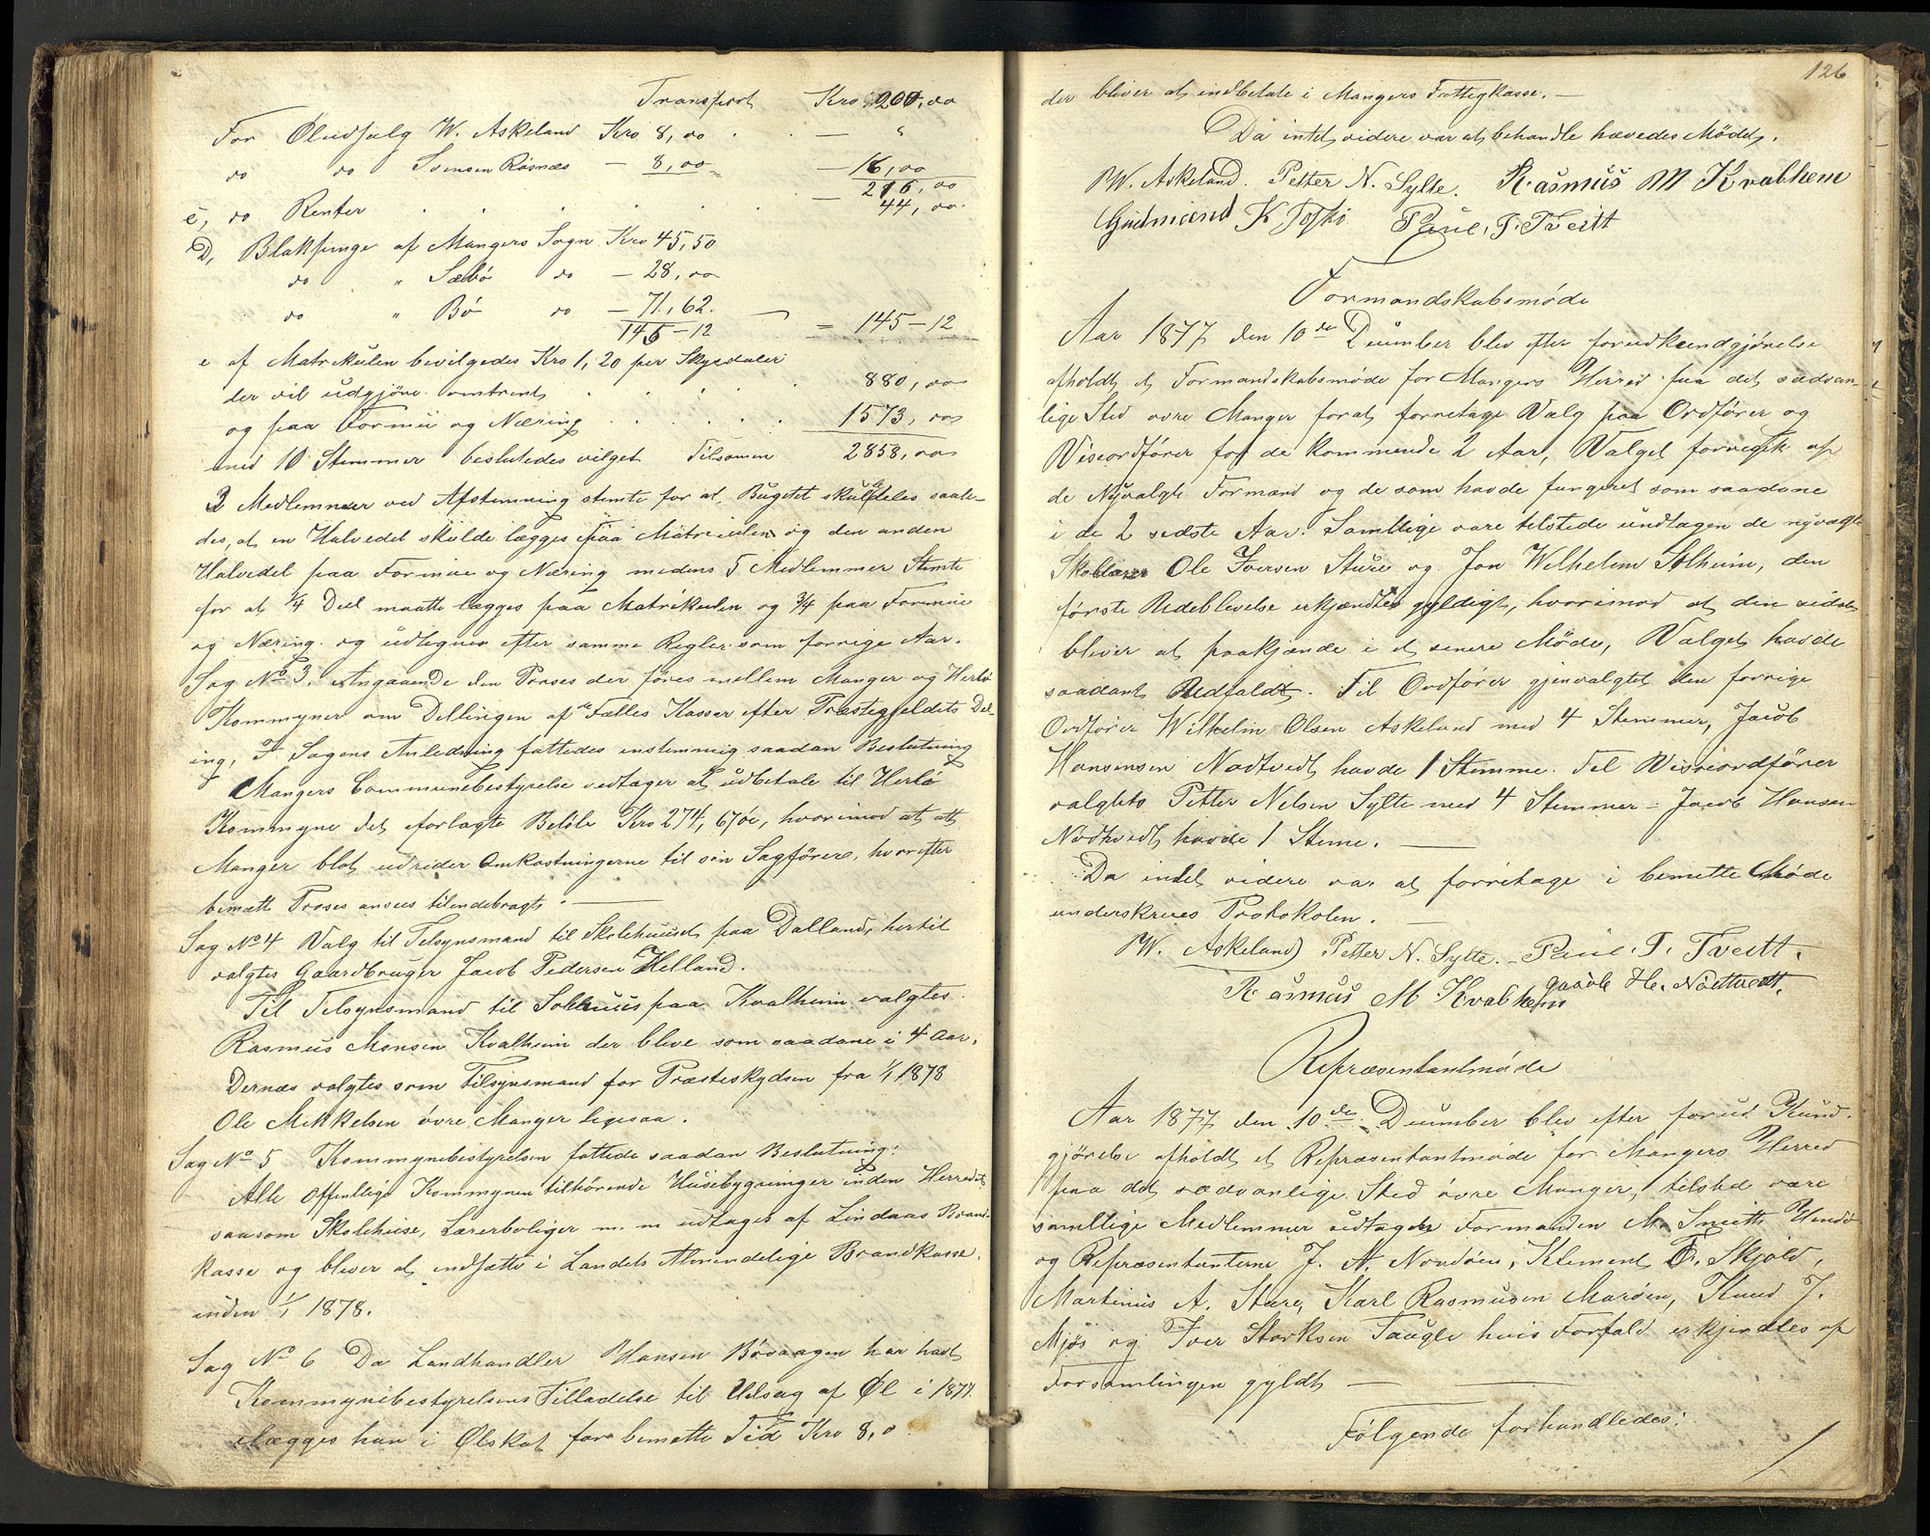 Transport Kro 200,00
For Øludsalg W. Askeland Kro 8,00 . . — "
do do Svensen Rosnæs — 8,00 — 16,00
216,00
c, do Renter . . . . . — 44,00
D, Blakpenge af Mangers Sogn Kro 45,50
do " Sæbö do — 28,00
do " Bö do — 71,62.
145-12 = 145-12
e af Matrikulen bevilgedes Kro 1,20 per Skyldaler
der vil udgjöre omtrent . . . . 880,00
og paa Formue og Næring . . . . . 1573,00
med 10 Stemmer besluttedes vilget Tilsamen 2858,00
3 Medlemmer ved Afstemning stemte for at Bugetet skulde deles saale-
des, at en Halvedel skulde lægges paa Matriculen og den anden
Halvdel paa Formue og Næring medens 5 Medlemmer Stemte
for at 1/4 Deel maatte lægges paa Matrikulen og 3/4 paa Formue
og Næring og udlignes efter samme Regler som forrige Aar.
Sag No 3. Angaaende den Proses der föres mellem Manger og Herlö
Kommyner om Dellingen af de Fælles Kasser efter Præstegjeldets Del-
ing, I Sagens Anledning fattedes enstemmig saadan Beslutning
Mangers Communebestyrelse vedtager at udbetale til Herlö
Kommyne det forlagte Belöb Kro 274, 67öre, hvorimod at
Manger blot udreder Omkostningerne til sin Sagförer, hvorefter
bemætte Proses ansees tilendebragt. —
Sag No 4 Valg til Tilsynsmand til Skolehuuset paa Dalland, hertil
valgtes Gaardbruger Jacob Pedersen Helland.
Til Tilsynsmand til Solehuus paa Kvalheim valgtes
Rasmus Monsen Kvalheim der blive som saadane i 4 Aar,
Dernæs valgtes som Tilsynsmand for Præsteskydsen fra 1/1 1878
Ole Mikkelsen övre Manger ligesaa.
Sag No 5 Kommynebestyrelsen fattede saadan Beslutning:
Alle Offentlige Kommynen tilhörende Huusebygninger inden Herredet
saasom Skolehuse, Lærerboliger m. m udtages af Lindaas Brand-
kasse og bliver at indsætte i Landets Almindelige Brandkasse
inden 1/1 1878.
Sag No 6 Da Landhandler Hansen Bövaagen har havt
Kommynebestyrelsens Tilladelse til Udsag af Øl i 1877.
ilægges han i Ølskat for bemætte Tid Kro 8,0
126
der bliver at indbetale i Mangers Fattigkasse. —
Da intet videre var at behandle hævedes Mödet.
W. Askeland. Petter N. Sylte. Rasmus M Kvalhem
Gudmund K Paul. T. Tveitt
Formandskabsmöde
Aar 1877 den 10de December blev efter forudkundgjörelse
afholdt et Formandskabsmöde for Mangers Herred paa det sædvan-
lige Sted övre Manger forat forretage Valg paa Ordförer og
Viseordförer for de kommende 2 Aar, Valget forregik af
de Nyvalgte Formænd og de som havde fungeret som saadane
i de 2 sedste Aar. Samtlige vare tilstede undtagen de nyvagte
Skolelærer Ole Iversen Sture og Jon Wilhelm Solheim, den
förste Udeblevelse erkjændtes gyldigt, hvorimod at den sidste
bliver at paakjænde i et senere Möde, Valget havde
saadant Udfaldt. Til Ordförer gjenvalgtes den forrige
Ordförer Wilhelm Olsen Askeland med 4 Stemmer, Jacob
Hansensen Nodtvedt havde 1 Stemme. Til Viseordförer
valgtes Petter Nelsen Sylte med 4 Stemmer – Jacob Hansen
Nodtvedt havde 1 Steme. —
Da intet videre var at forretage i bemætte Möde
underskrives Protokolen. —
W. Askeland Petter N. Sylte. – Paul. T. Tveitt.
Rasmus M Kvalhem Jacob H. Nodtvedt.
Repræsentantmöde
Aar 1877 den 10de December blev efter forud Kund-
gjörelse afholdt et Repræsentantmöde for Mangers Herred
paa det sædvanlige Sted övre Manger, tilsted vare
samtlige Medlemmer udtagen Formanden M. Smith
og Repræsentanterne J. A. Nordöen, Klement T. Skjold,
Martinus A. Stære, Karl Rasmusen Maröen, Knud J.
Mjös og Iver Storksen Taugle hvis Forfald erkjendtes af
Forsamlingen gyldt — —
Følgende forhandledes: